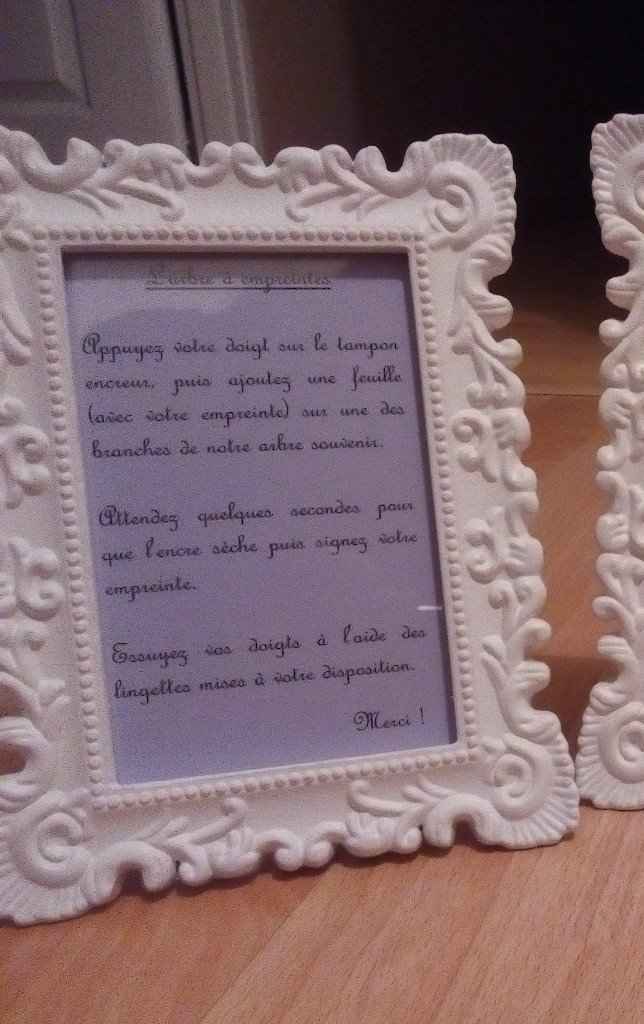 L'arbre à empreintes
Appuyez votre doigt sur le tampon
encreur, puis ajoutez une feuille
(avec votre empreinte) sur une des
branches de notre arbre souvenir.
Attendez quelques secondes pour
que l'encre sèche puis signez votre
empreinte.
Essuyez vos doigts à l'aide des
lingettes mises à votre disposition.
Merci !